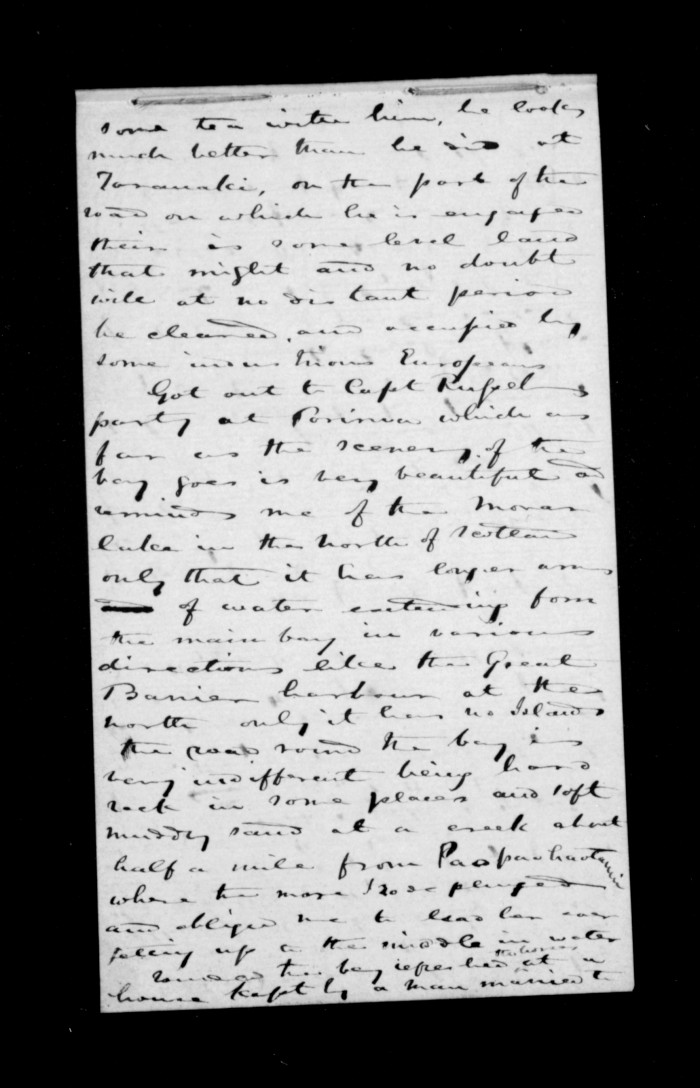 some tea with him, he looks
much better than he did at
Taranaki, on the part of the
road on which he is engaged
their is some level land
that might and no doubt
will at no distant period
be cleared, and occupied by
some industrious Europeans
Got out to Capt Russells
party at Porirua which as
far as the scenery of the
bay goes is very beautiful and
reminds me of the Moran
lake in the north of Scotland
only that it has longer arms
of water extending form
the main bay in various
directions like the Great
Barrier harbour at the
north only it has no Islands
the road round the bay is
very indifferent being hard
rock in some places and soft
muddy sand at a creek about
half a mile from
where the mare I rode plunged
and obliged me to lead her over
getting up to the middle in water
Rounded the bay refreshed the horses at a
house kept by a man married to